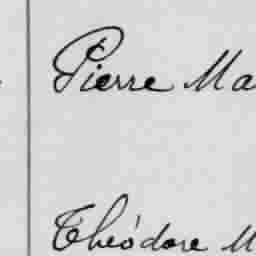 Pierre Ma
Théodore M